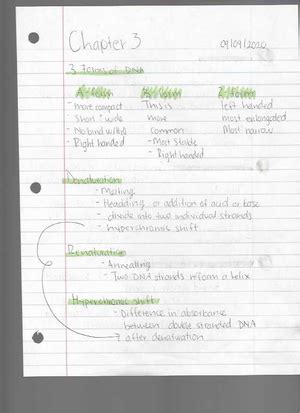 Chapter 3
09/09/2020
3 Forms of DNA
A Form B Form Z Form
- more compact This is left handed
- Short & wide more most enlongated
- Right handed common Most narrow
- Most stable
- Right handed
Denaturation
- Melting
- Headding or addition of acid or base
- divide into two individual strands
- hyperchromic shift
Renaturation
- Annealing
- Two DNA strands reform a helix
Hyperchromic shift
- Difference in absorbance
between double stranded DNA
after denaturation